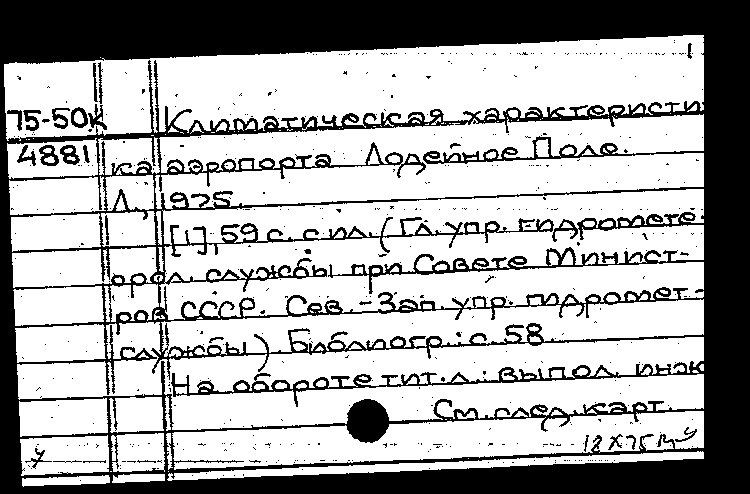 1
75-50к Климатическая характеристи
4881 ка аэропорта Лодейное Поле.
Л., 1975.
[1], 59 с. с ил. (Гл. упр. гидромете-
орол. службы при Совете Минист-
ров СССР. Сев.-Зап. упр. гидромет-
службы). Библиогр.: с. 58.
На обороте тит. л.: выпол. инж
См. след. карт.
у 18 X 75